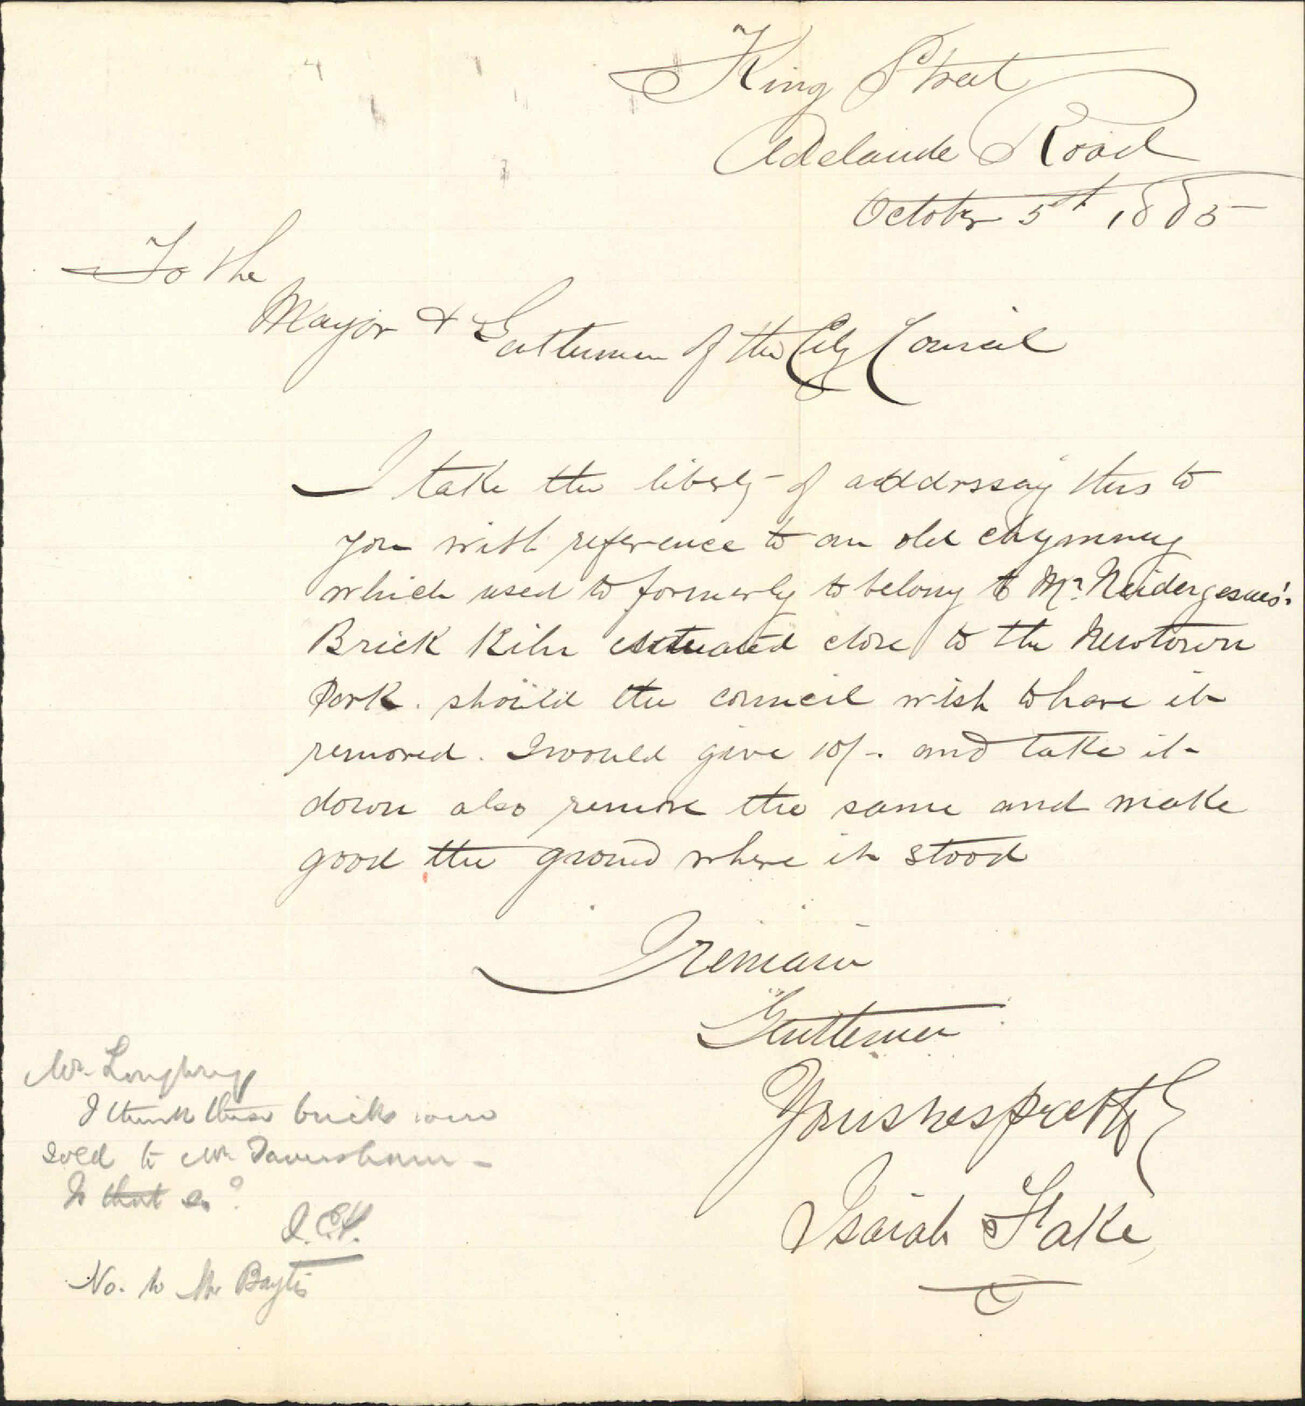 King Street
Adelaide Road
October 5th 1885
To the
Mayor & Gentlemen of the City Council
I take the liberty of addressing this to
you with reference to an old chymney
which used to formerly to belong to Mr.
Brick Kiln situated close to the Newtown
Park. should the council wish to have it
removed. I would give 10/-. and take it
down also remove the same and make
good the ground where it stood
I remain
Gentlemen
Yours respectfly
Isaiah Flake
Mr.
I think these bricks were
sold to Mr
Is that so?
No. to Mr Baylis